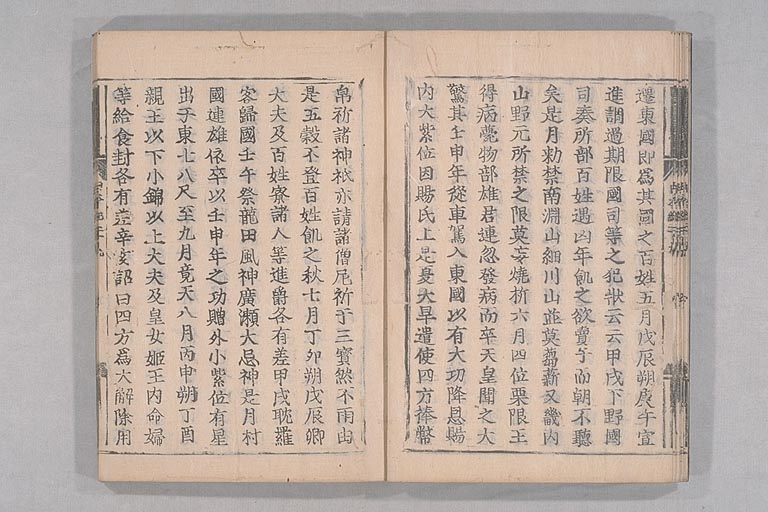 遷東國即爲其國之百姓五月戊辰朔庚午宣
進調過期限國司等之犯狀云云甲戌下野國
司奏所部百姓遇凶年飢之欲賣子而朝不聽
矣是月勅禁南淵山細川山並莫蒭薪又畿內
山野元所禁之限莫妄燒折六月四位栗隈王
得病薨物部雄君連忽發病而卒天皇聞之大
驚其壬申年從車駕入東國以有大功降恩贈
內大紫位因賜氏上是夏大旱遣使四方捧幣
帛祈諸神祇亦請諸僧尼祈于三寶然不雨由
是五穀不登百姓飢之秋七月丁卯朔戊辰卿
大夫及百姓寮諸人等進爵各有差甲戌耽羅
客歸國壬午祭龍田風神廣瀨大忌神是月村
國連雄依卒以壬申年之功贈外小紫位有星
出于東七八尺至九月竟天八月丙申朔丁酉
親王以下小錦以上大夫及皇女姬王內命婦
等給食封各有差辛亥詔曰四方爲大解除用